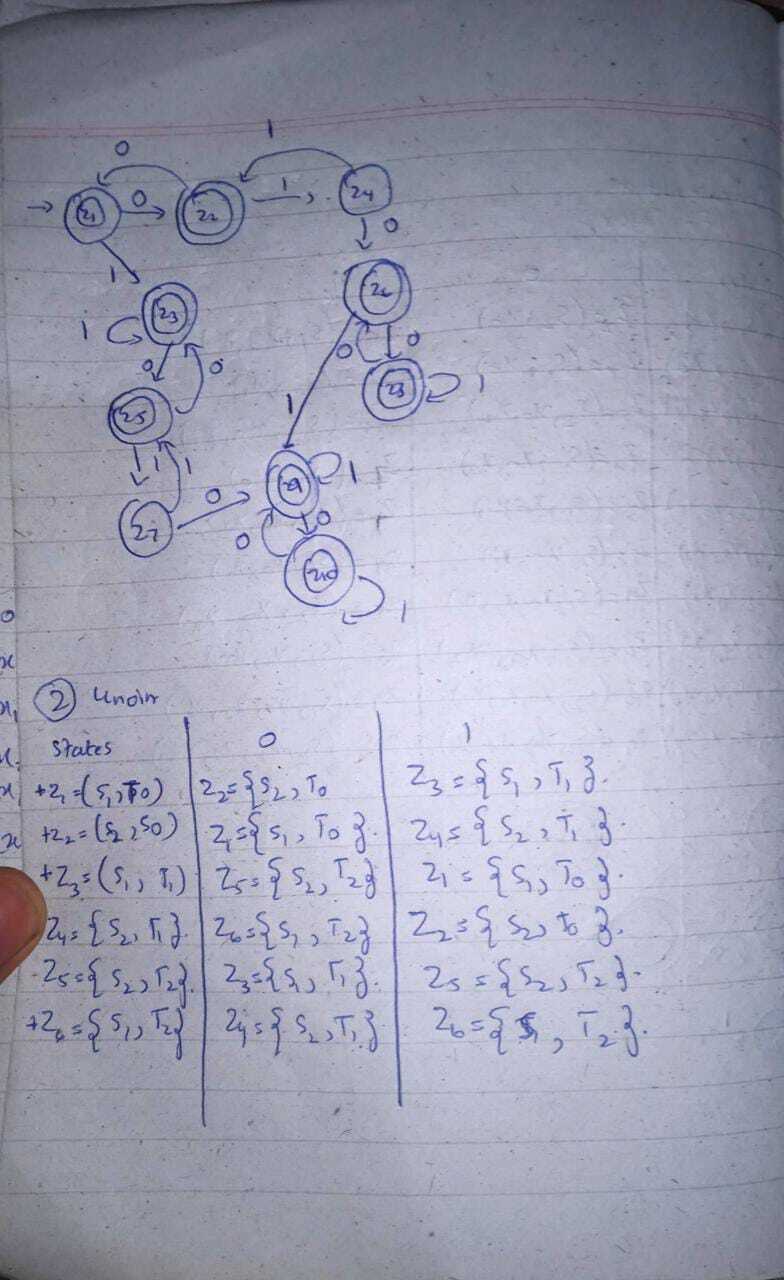 0 1
z1 0 z2 1 z4
0
1
z3 z6
1 0 0 0 0
z5 z8 1
1
1 1 z9 1
z7 0 0
0
z10
1
② Unoin
States 0 1
+Z1=(S1,T0) Z2={S2,T0 Z3={S1,T1}.
+Z2=(S2,S0) Z1={S1,T0}. Z4={S2,T1}.
+Z3=(S1,T1) Z5={S2,T2} Z1={S1,T0}.
Z4={S2,T1}. Z6={S1,T2} Z2={S2,T0}.
Z5={S2,T2}. Z3={S1,T1}. Z5={S2,T2}.
+Z6={S1,T2} Z4={S2,T1} Z6={S1,T2}.